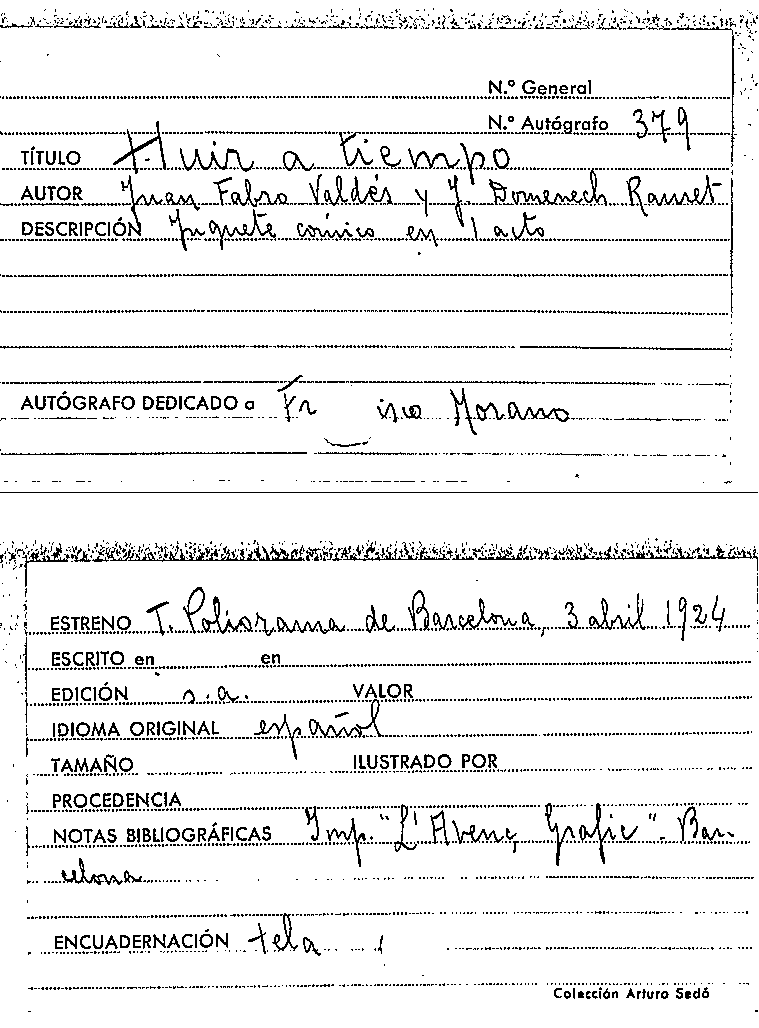 N.º General
N.º Autógrafo 379
TÍTULO Huir a tiempo
AUTOR Juan Fabro Valdés y J. Domenech Ranset
DESCRIPCIÓN Juguete cómico en 1 acto
AUTÓGRAFO DEDICADO a Fr isco Morano
ESTRENO T. Poliorama de Barcelona, 3 abril 1924
ESCRITO en en
EDICIÓN s.a. VALOR
IDIOMA ORIGINAL español
TAMAÑO ILUSTRADO POR
PROCEDENCIA
NOTAS BIBLIOGRÁFICAS Imp. "L'Avenç Grafic". Bar-
celona
ENCUADERNACIÓN tela
Colección Arturo Sedó